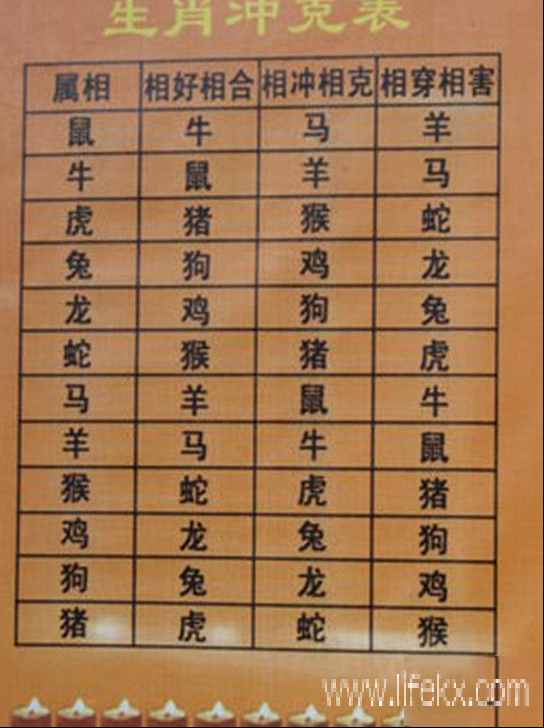 生肖冲克表
属相 相好相合 相冲相克 相穿相害
鼠 牛 马 羊
牛 鼠 羊 马
虎 猪 猴 蛇
兔 狗 鸡 龙
龙 鸡 狗 兔
蛇 猴 猪 虎
马 羊 鼠 牛
羊 马 牛 鼠
猴 蛇 虎 猪
鸡 龙 兔 狗
狗 兔 龙 鸡
猪 虎 蛇 猴
www.lifekx.com